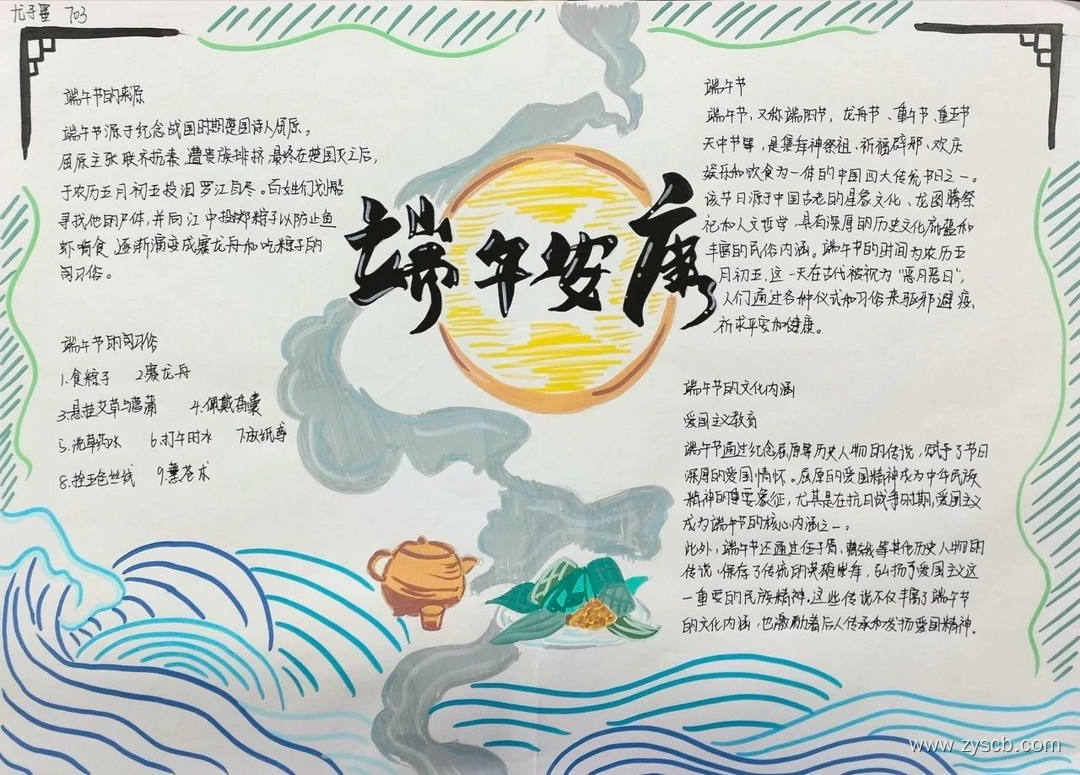 703
端午节的来源
端午节源于纪念战国时期楚国诗人屈原。
屈原主张联齐抗秦,遭贵族排挤,最终在楚国灭亡后,
于农历五月初五投汨罗江自尽。百姓们划船
寻找他的尸体,并向江中投掷粽子以防止鱼
虾啃食,逐渐演变成赛龙舟和吃粽子的
习俗。
端午节的习俗
1.食粽子 2.赛龙舟
3.悬挂艾草与菖蒲 4.佩戴香囊
5.洗草药水 6.打午时水 7.放纸鸢
8.拴五色丝线 9.熏苍术
端午安康
端午节
端午节,又称端阳节,龙舟节、重午节、重五节
天中节等,是集拜神祭祖、祈福辟邪、欢庆
娱乐和饮食为一体的中国四大传统节日之一。
该节日源于中国古老的星象文化、龙图腾祭
祀和人文哲学,具有深厚的历史文化底蕴和
丰富的民俗内涵。端午节的时间为农历五
月初五,这一天在古代被视为“恶月恶日”,
人们通过各种仪式和习俗来驱邪避疫、
祈求平安和健康。
端午节的文化内涵
爱国主义教育
端午节通过纪念屈原等历史人物的传说,赋予了节日
深厚的爱国情怀。屈原的爱国精神成为中华民族
精神的重要象征,尤其是在抗日战争时期,爱国主义
成为端午节的核心内涵之一。
此外,端午节还通过伍子胥、曹娥等其他历史人物的
传说,保存了传统的英雄,弘扬了爱国主义这
一重要的民族精神。这些传说不仅丰富了端午节
的文化内涵,也激励着后人传承和发扬爱国精神。
www.zyscb.com